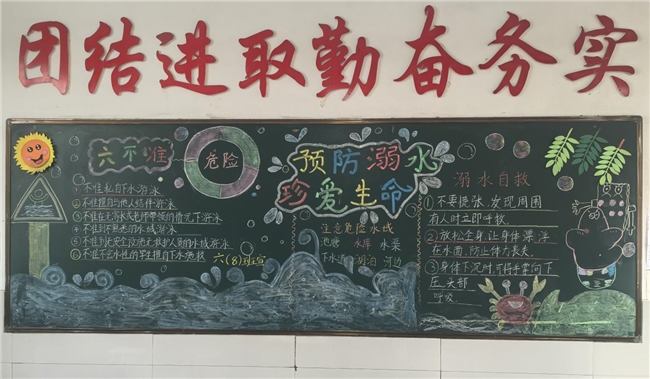 团结进取勤奋务实
六不准
①不准私自下水游泳
②不准擅自与他人结伴游泳
③不准在无家长或老师带领的情况下游泳
④不准到不熟悉的水域游泳
⑤不准到无安全设施无救护人员的水域游泳
⑥不准不会水性的学生擅自下水施救
六(8)班宣
危险
预防溺水
珍爱生命
注意危险水域
池塘 水库 水渠
下水道 湖泊 河边
溺水自救
①不要慌张,发现周围
有人时立即呼救。
②放松全身,让身体漂浮
在水面,防止体力丧失。
③身体下沉时,可将手掌向下
压,头部
呼吸